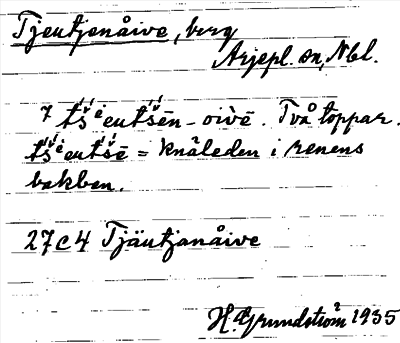 Tjeutjenåive, berg
Arjepl. sn, Nbl.
7 tš́ i̇eutš́ēn-oìvē. Två toppar.
tš́ i̇eutš́ē = knäleden i renens
bakben.
27C4 Tjäutjanåive
H. Grundström 1935